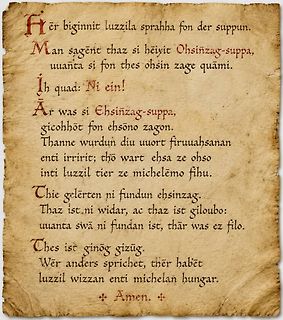 Hēr biginnit luzzila sprahha fon der suppun.
Man sagēnt thaz si hēiyit Ohsinzag-suppa,
uuanta si fon thes ohsin zage quāmi.
Ih quad: Ni ein!
Ār was si Ehsinzag-suppa,
gicohhōt fon ehsōno zagon.
Thanne wurdun diu uuort firuuahsanan
enti irririt; thō wart ehsa ze ohso
inti luzzil tier ze michelēmo fihu.
Thie gelērten ni fundun ehsinzag.
Thaz ist ni widar, ac thaz ist giloubo:
uuanta swā ni fundan ist, thār was ez filo.
Thes ist ginōg gizūg.
Wēr anders sprichet, thēr habēt
luzzil wizzan enti michelan hungar.
✣ Amen. ✣